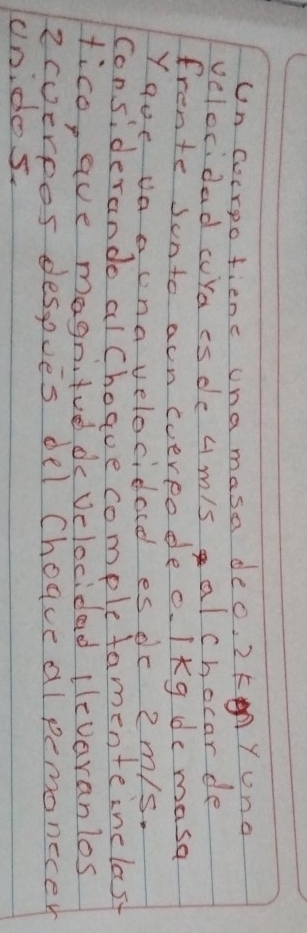 Un cuerpo tiene una masa de 0.2 k y una
velocidad cuya es de 4 m/s al chocar de
frente junto aun cuerpo de 0.1 kg de masa
y que va a una velocidad es de 2 m/s.
Considerando al choque completamente inelas-
tico, que magnitud de velocidad llevaran los
2 cuerpos después del choque al pemanecer
unidos.